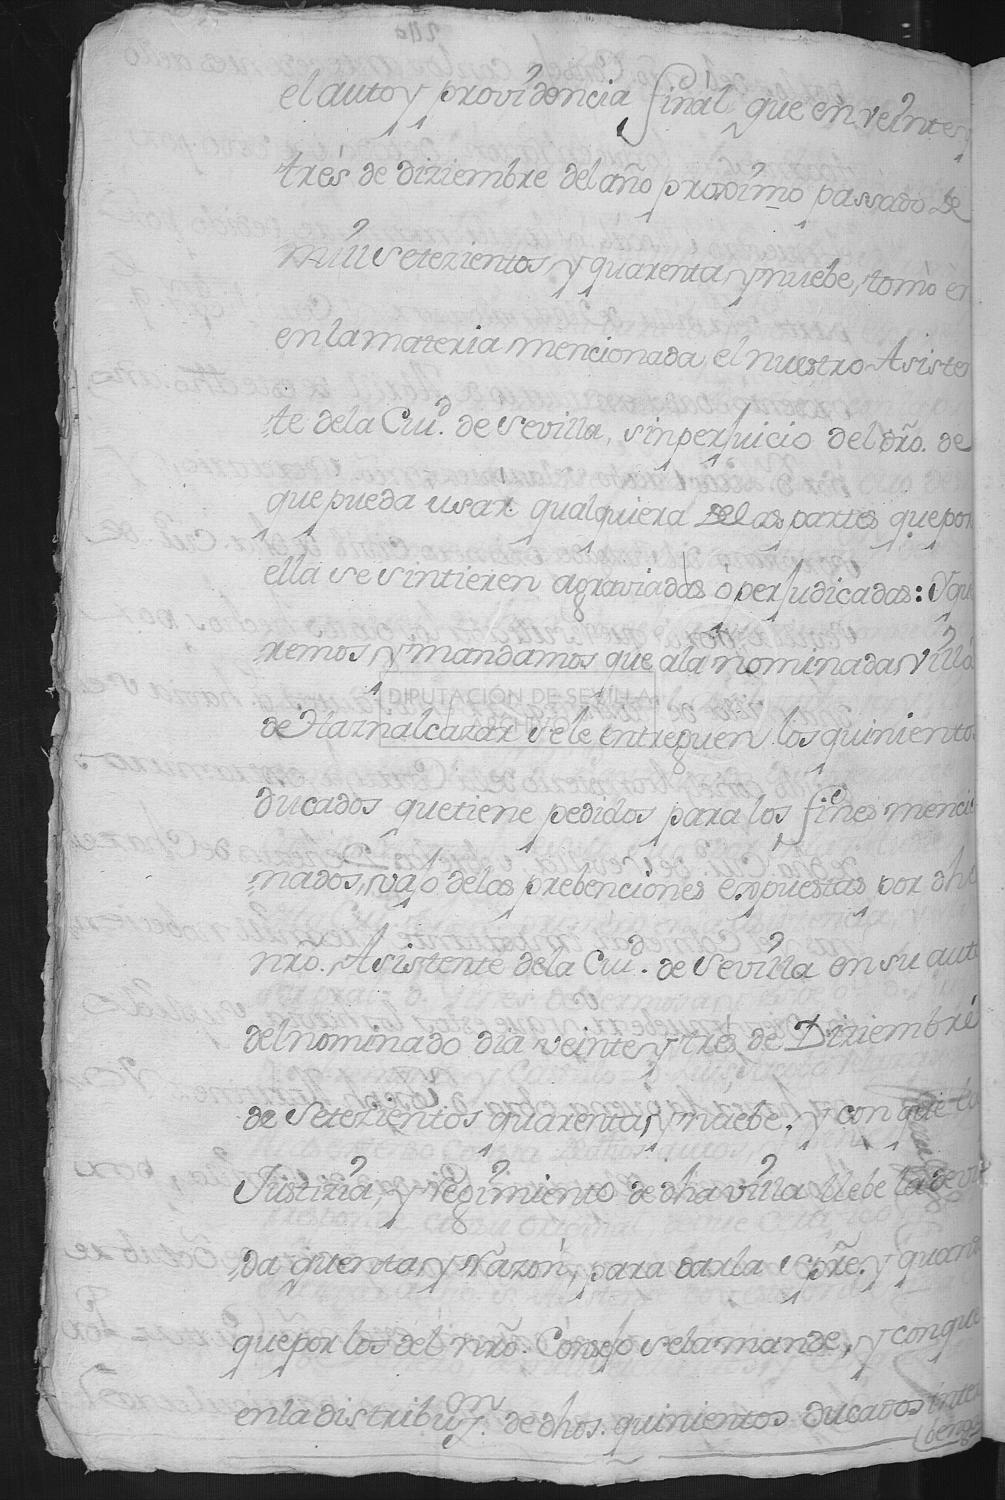 el auto y providencia final que en veinte y
tres de diziembre del año proximo passado de
mill setezientos, y quarenta, y nuebe, tomó en
en la materia mencionada el nuestro Asisten
te de la Ciud. de Sevilla, sin perjuicio del dro. de
que pueda usar qualquiera de las partes que por
ella se sintieren agraviadas o perjudicadas: Y que
remos, y mandamos que a la nominada villa
de Haznalcazar se le entreguen los quinientos
ducados que tiene pedidos para los fines mencio
nados, vajo de las prebenciones expuestas por dho
nro. Asistente de la Ciud. de Sevilla en su auto
del nominado dia veinte y tres de Diziembre
de setezientos quarenta, y nuebe, y con que la
Justizia, y regimiento de dha villa llebe la devi
da quenta, y razón, para darla sre. y quando
que por los del nro. Consejo se la mande, y con que
en la distribuzn. de dhos. quinientos ducados inter
benga
DIPUTACIÓN DE SEVILLA
ARCHIVO